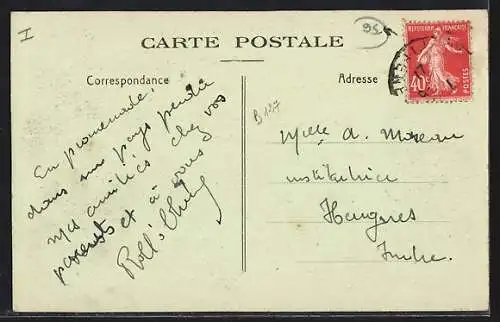 I
95
CARTE POSTALE
Correspondance
Adresse
RÉPUBLIQUE FRANÇAISE
40c
POSTES
B127
En promenade,
dans un pays perdu
mes amitiés chez vos
parents et à vous
Melle A. Moreau
institutrice
Heugnes
Indre.